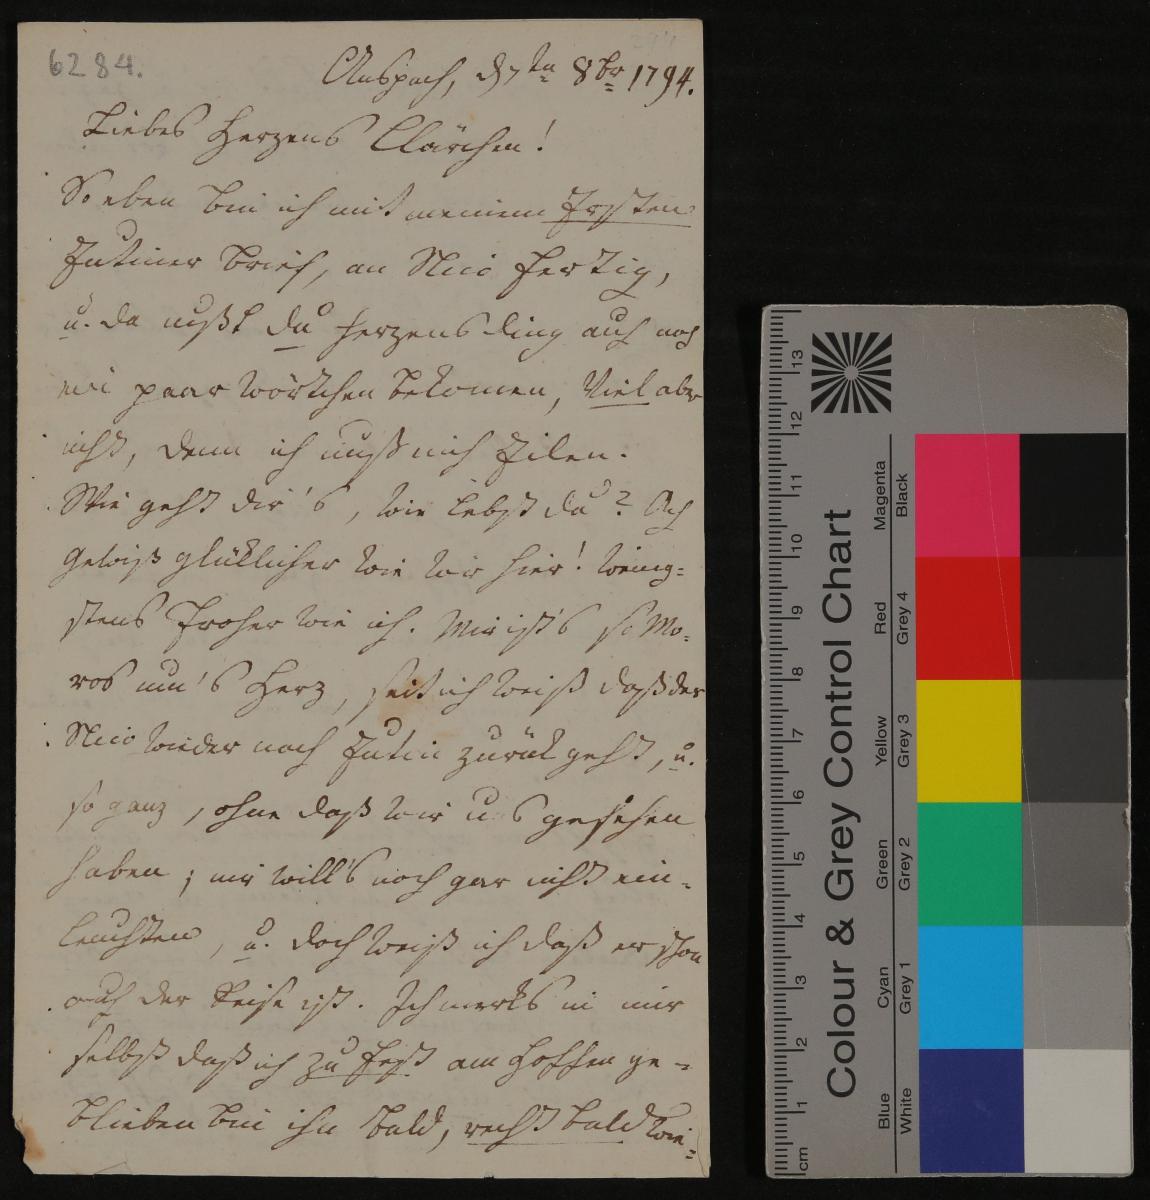 6284.
Anspach, d 7tn 8br 1794.
Liebes Herzens Clärchen!
So eben bin ich mit meinem Ersten
Eutiner Brief, an Nico fertig,
u. da mußt du herzens ding auch noch
ein paar wörtchen bekomen, Viel aber
nicht, denn ich muß mich Eilen.
Wie geht dir's, wie Lebst du? Ach
gewiß glüklicher wie wir hier! wenig=
stens froher wie ich. Mir ist's so Mo=
ros um's Herz, seit ich weiß daß der
Nico wieder nach Eutin zurük geht, u.
so ganz, ohne daß wir uns gesehen
haben; mir will's noch gar nicht ein=
leuchten, u. doch weiß ich daß er schon
auf der Reise ist. Ich merks in mir
selbst daß ich zu fest am Hoffen ge=
blieben bin ihn bald, recht bald wie=
Colour & Grey Control Chart
Blue Cyan Green Yellow Red Magenta
White Grey 1 Grey 2 Grey 3 Grey 4 Black
cm 1 2 3 4 5 6 7 8 9 10 11 12 13